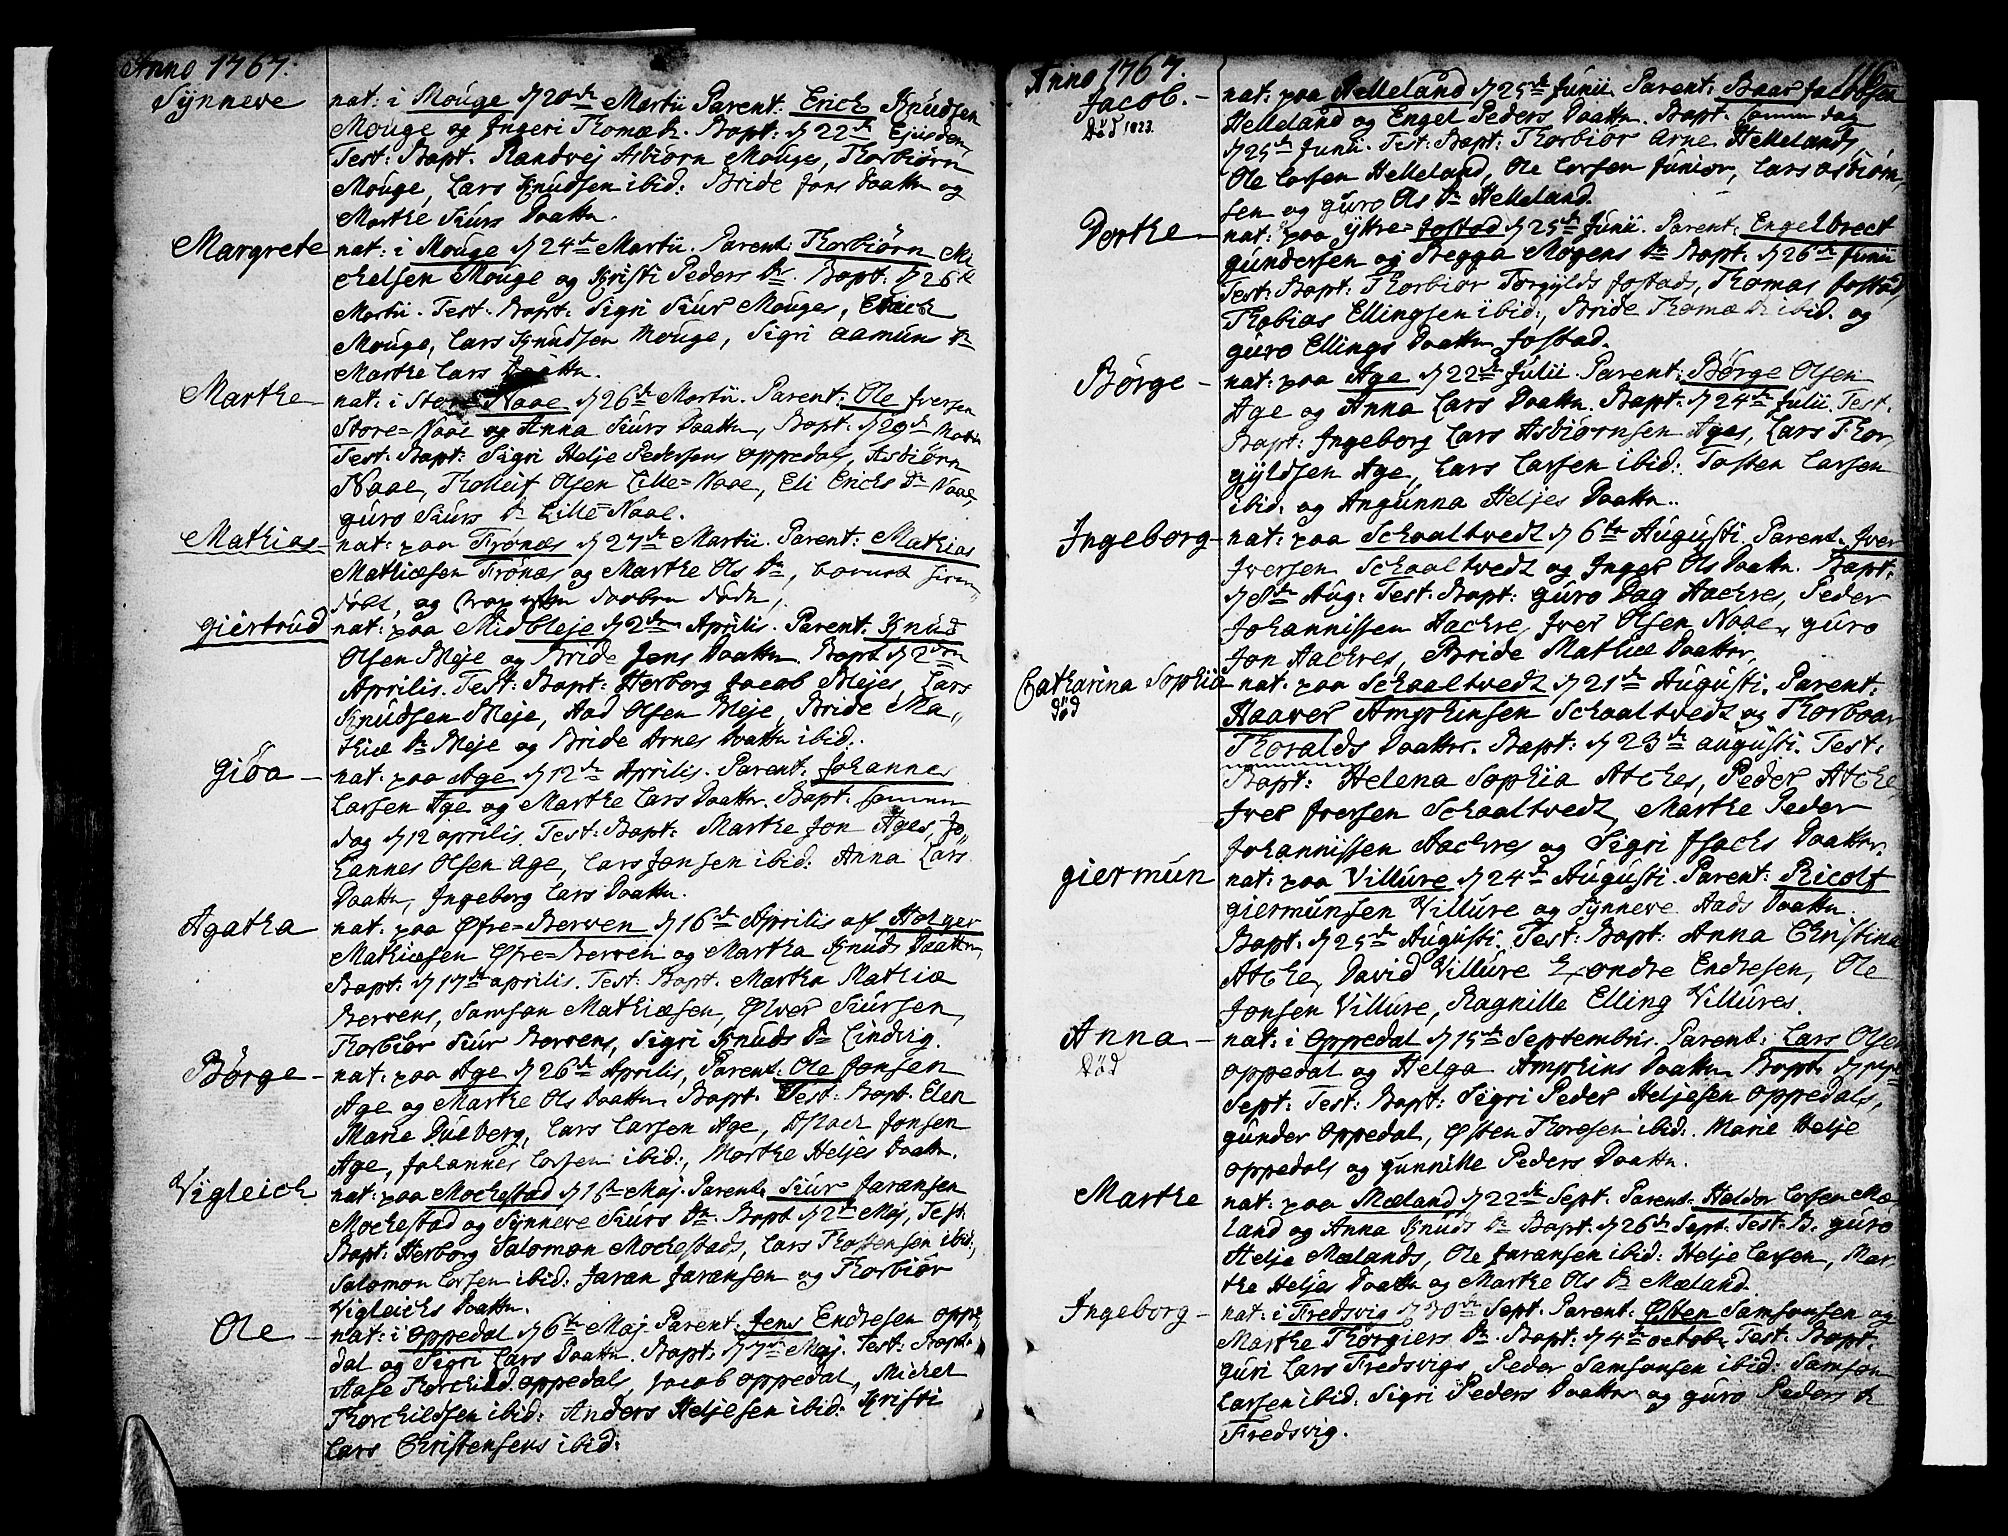 Anno 1767.
Synneve
nat: i Mouge d 20de Martii Parent: Erich Knudsen
Mouge og Ingeri Thomæ D. Bapt: d 22de Ejusdem,
Test: Bapt. Randvej Asbiørn Mouges, Thorbiørn
Mouge, Lars Knudsen ibid: Bride Jons Daatter og
Marthe Siurs Daatter.
Margrete
nat: i Mouge d 24de Martii. Parent: Thorbiørn Mi
chelsen Mouge og Kristi Peders Dr. Bapt: d 26de
Martii. Test. Bapt: Sigri Siur Mouges, Erich
Mouge, Lars Knudsen Mouge, Sigri Aamuns Dr
Marthe Lars Daatter.
Marthe
nat: i Store Naae d 26de Martii. Parent: Ole Iversen
Store=Naae og Anna Siurs Daatter, Bapt: d 29de Martii
Test: Bapt: Sigri Helje Pedersens Oppedals, Asbiørn
Naae, Tholleif Olsen Lille=Naae, Eli Erichs Dr Naae,
Guro Siurs Dr Lille=Naae.
Mathias
nat: paa Frønæs d 27de Martii. Parent: Mathias
Mathiæsen Frønæs og Marthe Ols Dr,
døbt, og
Giertrud
nat: paa Midbleje d 2den Aprilis. Parent: Knud
Olsen Bleje og Bride Jons Daatter. Bapt d 2den
Aprilis. Test: Bapt: Herborg Jacob Blejes, Lars
Knudsen Bleje, Aad Olsen Bleje, Bride Ma„
thiæ Dr Bleje og Bride Arnes Daatter ibid:.
Giøa
nat: paa Age d 12de Aprilis. Parent: Johannes
Larsen Age og Marthe Lars Daatter. Bapt: samme
dag d 12 aprilis. Test: Bapt: Marthe Jon Ages, Jo„
hannes Olsen Age, Lars Jonsen ibid: Anna Lars
Daatter, Ingeborg Lars Daatter.
Agatha
nat: paa Øfre=Berven d 16de Aprilis af Holger
Mathiæsen Øfre=Berven og Martha Knuds Daatter
Bapt: d 17de aprilis. Test: Bapt. Martha Mathiæ
Bervens, Samson Mathiæsen, Ølver Siursen,
Thorbiør Siur Bervens, Sigri Knuds Dr Lindvig.
Børge
nat: paa Age d 26de Aprilis, Parent: Ole Jonsen
Age og Marthe Ols Daatter. Bapt. Test: Bapt. Elen
Marie Dulberg, Lars Larsen Age, Aslach Jonsen
Age, Johannes Larsen ibid:, Marthe Heljes Daatter.
Vigleich
nat: paa Mochestad d 1ste Maj. Parent: Siur Jaransen
Mochestad og Synneve Siurs Dr. Bapt d 2de Maj, Test:
Bapt: Herborg Salomon Mochestads, Lars Thostensen ibid:,
Salomon Larsen ibid: Jaran Jaransen og Thorbiør
Vigleichs Daatter.
Ole
nat: i Oppedal d 6te Maj. Parent: Jens Endresen Oppe
dal og Sigri Lars Daatter. Bapt: d 7de Maj. Test: Bapt:
Aase Thorchild Oppedals, Jacob Oppedal, Michel
Thorchildsen ibid: Anders Heljesen ibid: Kristi
Lars Christensens ibid:
Anno 1767.
116
Jacob.
Død 1823.
nat: paa Helleland d 25de Junii. Parent: Baar Jacobsen
Helleland og Engel Peders Daatter. Bapt. samme dag
d 25de Junii. Test: Bapt: Thorbiør Arne Hellelands,
Ole Larsen Helleland, Ole Larsen Junior, Lars Asbiørn„
sen og Guro Ols Dr Helleland.
Dorthe
nat: paa yttre=Jostad d 25de Junii. Parent: Engelbrect
Gundersen og Segga Mogens Dr Bapt: d 26de Junii
Test: Bapt: Thorbiør Torgylds Jostads, Thomas Jostad,
Thobias Ellingsen ibid:, Bride Thomæ D ibid. og
Guro Ellings Daatter Jostad.
Børge
nat: paa Age d 22de Julii. Parent: Børge Olsen
Age og Anna Lars Daatter. Bapt: d 24de Julii. Test.
Bapt: Ingeborg Lars Asbiørnsen Ages, Lars Thor
gyldsen Age, Lars Larsen ibid: Tosten Larsen
ibid: og Angunna Heljes Daatter.
Ingeborg
nat: paa Schaaltvedt d 6te Augusti. Parent: Iver
Iversen Schaaltvedt og Inger Ols Daatter. Bapt:
d 8de Aug: Test: Bapt: Guro Dag Aachres, Peder
Johannissen Aachre, Iver Olsen Naae, Guro
Jon Aachres, Bride Mathiæ Daatter.
Catharina Sophia
død
nat: paa Schaaltvedt d 21de Augusti. Parent:
Haaver Amphinsen Schaaltvedt og Thorboar
Thoralds Daatter. Bapt: d 23de augusti. Test:
Bapt: Helena Sophia Atches, Peder Atche
Iver Iversen Schaaltvedt, Marthe Peder
Johannissen Aachres og Sigri Isachs Daatter.
Giermun
nat: paa Villure d 24de Augusti. Parent: Ricolf
Giermunsen Villure og Synneve Aads Daatter.
Bapt: d 25de Augusti. Test: Bapt: Anna Christina
Atche, David Villure Endre Endresen, Ole
Jonsen Villure, Ragnille Elling Villures.
Anna
Død
nat: i Oppedal d 15de Septembris. Parent: Lars Olsen
Oppedal og Helga Amphins Daatter. Bapt:
Sept: Test: Bapt: Sigri Peder Heljesen Oppedals,
Gunder Oppedal, Østen Thoresen ibid. Marie Helje
Oppedals og Gunnille Peders Daatter.
Marthe
nat: paa Mæland d 22de Sept. Parent: Haldor Larsen Mæ„
land og Anna Knuds Dr Bapt: d 26de Sept: Test: B. Guro
Helje Mælands, Ole Jaransen ibid: Helje Larsen, Mar„
the Heljes Daatter og Marthe Ols Dr Mæland.
Ingeborg
nat: i Fredsvig d 30de Sept. Parent: Østen Samsonsen og
Marthe Thorgiers Dr. Bapt: d 4de Octobr. Test: Bapt.
Guri Lars Fredsvigs, Peder Samsonsen ibid: Samson
Larsen ibid: Sigri Peders Daatter og Guro Peders D
Fredsvig.